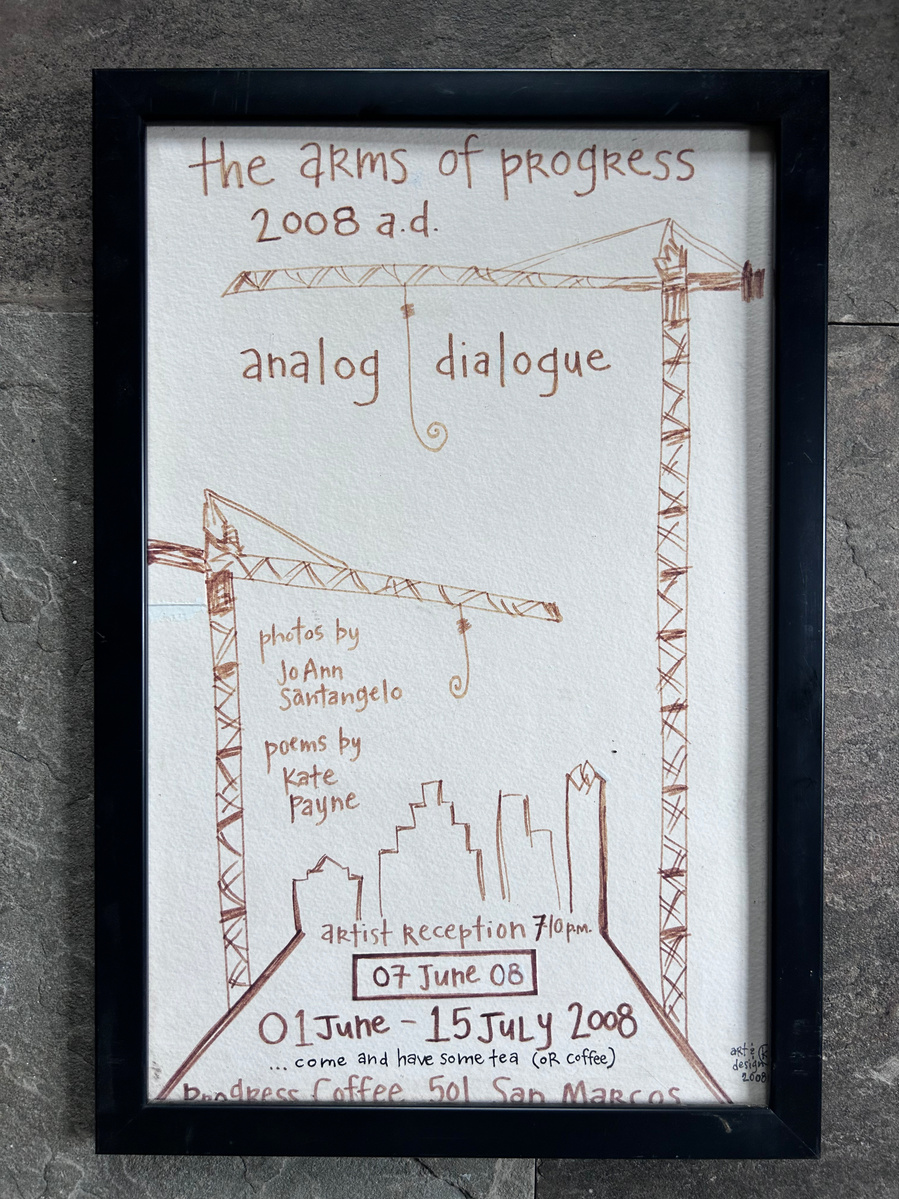 the aRms of pRogRess
2008 a.d.
analog dialogue
photos by
JoAnn
Santangelo
poems by
Kate
Payne
aRtist Reception 7-10 p.m.
07 June 08
01 June - 15 July 2008
... come and have some tea (oR coffee)
PRogRess Coffee 501 San MaRcos
art &
design
2008